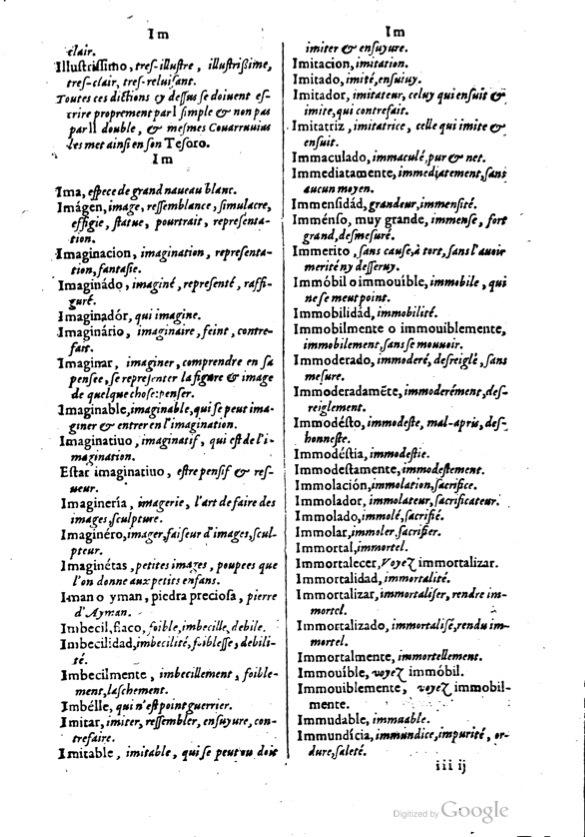 Im
clair.
Illustrissimo, tres-illustre, illustrißime,
tres-clair, tres-reluisant.
Toutes ces dictions cy dessus se doiuent es-
crire proprement par l simple & non pas
par ll double, & mesmes Couarruuias
les met ainsi en son Tesoro.
Im
Ima, espece de grand naueau blanc.
Imágen, image, ressemblance, simulacre,
effigie, statue, pourtrait, representa-
tion.
Imaginacion, imagination, representa-
tion, fantasie.
Imaginádo, imaginé, representé, raffi-
guré.
Imaginadór, qui imagine.
Imaginário, imaginaire, feint, contre-
fait.
Imaginar, imaginer, comprendre en sa
pensee, se representer la figure & image
de quelque chose: penser.
Imaginable, imaginable, qui se peut ima-
giner & entrer en l'imagination.
Imaginatiuo, imaginatif, qui est de l'i-
magination.
Estar imaginatiuo, estre pensif & res-
ueur.
Imaginería, imagerie, l'art de faire des
images, sculpture.
Imaginéro, imager, faiseur d'images, scul-
pteur.
Imaginétas, petites images, poupees que
l'on donne aux petits enfans.
Iman o yman, piedra preciosa, pierre
d'Ayman.
Imbecil, flaco, foible, imbecille, debile.
Imbecilidad, imbecilité, foiblesse, debili-
té.
Imbecilmente, imbecillement, foible-
ment, laschement.
Imbélle, qui n'est point guerrier.
Imitar, imiter, ressembler, ensuyure, con-
trefaire.
Imitable, imitable, qui se peut ou doit
Im
imiter & ensuyure.
Imitacion, imitation.
Imitado, imité, ensuiuy.
Imitador, imitateur, celuy qui ensuit &
imite, qui contrefait.
Imitatriz, imitatrice, celle qui imite &
ensuit.
Immaculado, immaculé, pur & net.
Immediatamente, immediatement, sans
aucun moyen.
Immensidád, grandeur, immensité.
Imménso, muy grande, immense, fort
grand, desmesuré.
Immerito, sans cause, à tort, sans l'auoir
merité ny desseruy.
Immóbil o immouíble, immobile, qui
ne se meut point.
Immobilidád, immobilité.
Immobilmente o immouiblemente,
immobilement, sans se mouuoir.
Immoderado, immoderé, desreiglé, sans
mesure.
Immoderadamẽte, immoderément, des-
reiglement.
Immodésto, immodeste, mal-apris, des-
honneste.
Immodéstia, immodestie.
Immodestamente, immodestement.
Immolación, immolation, sacrifice.
Immolador, immolateur, sacrificateur.
Immolado, immolé, sacrifié.
Immolar, immoler, sacrifier.
Immortal, immortel.
Immortalecer, voyez immortalizar.
Immortalidad, immortalité.
Immortalizar, immortaliser, rendre im-
mortel.
Immortalizado, immortalisé, rendu im-
mortel.
Immortalmente, immortellement.
Immouíble, voyez immóbil.
Immouiblemente, voyez immobil-
mente.
Immudable, immuable.
Immundícia, immundice, impurité, or-
dure, saleté.
iii ij
Digitized by Google